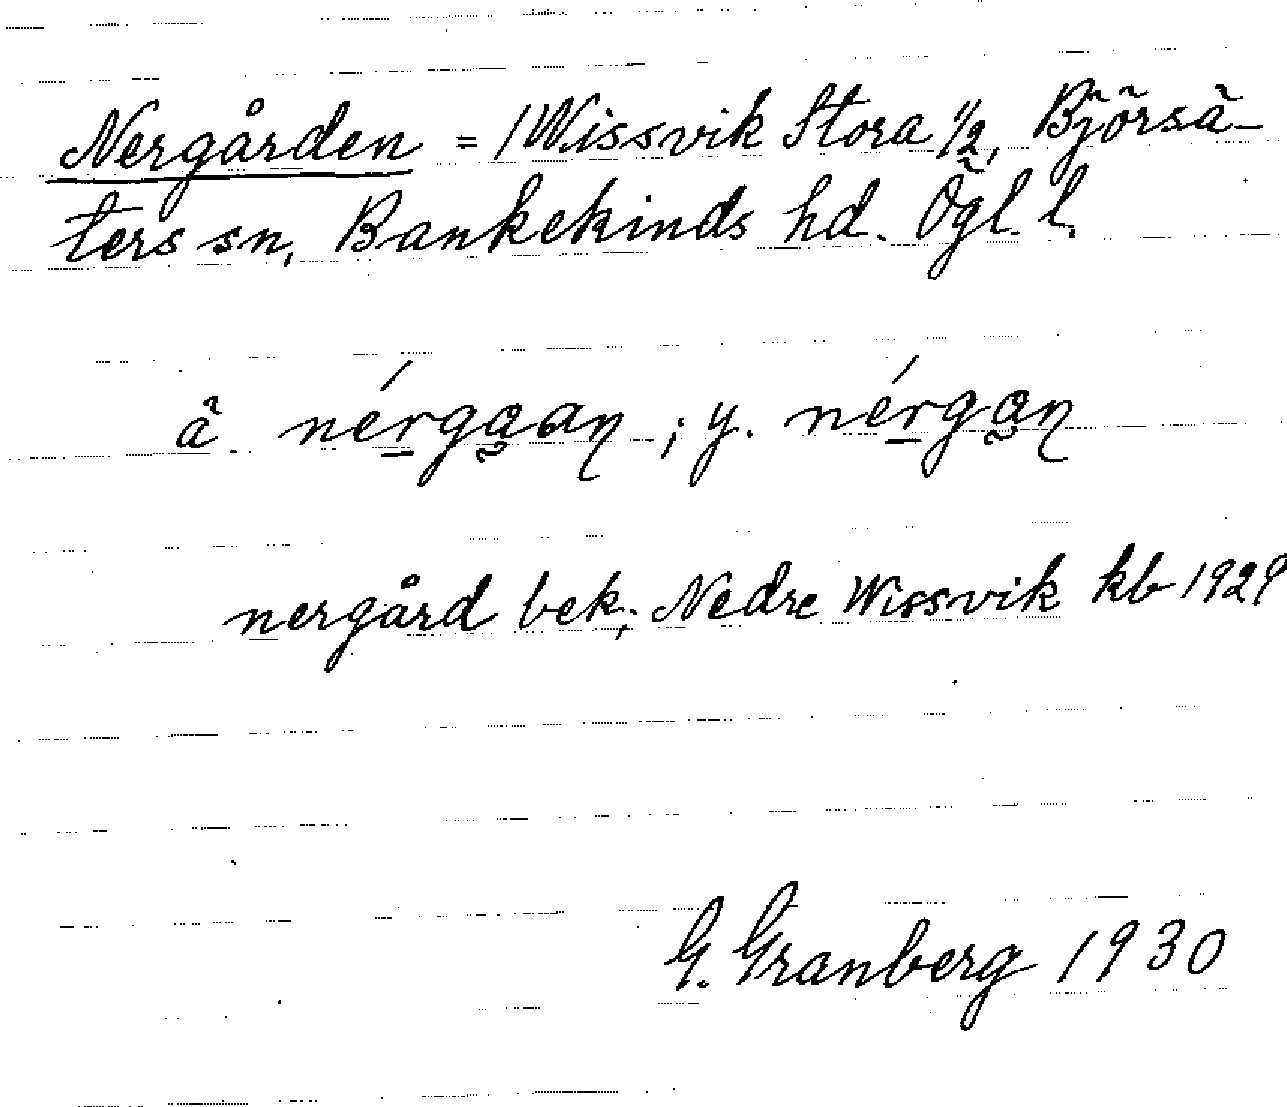 Nergården = /Wissvik Stora 1/2, Björsä-
ters sn, Bankekinds hd. Ögl. l.
ä. nérgaan ; y. nérgan
nergård bek.; Nedre Wissvik kb 1929
G. Granberg 1930